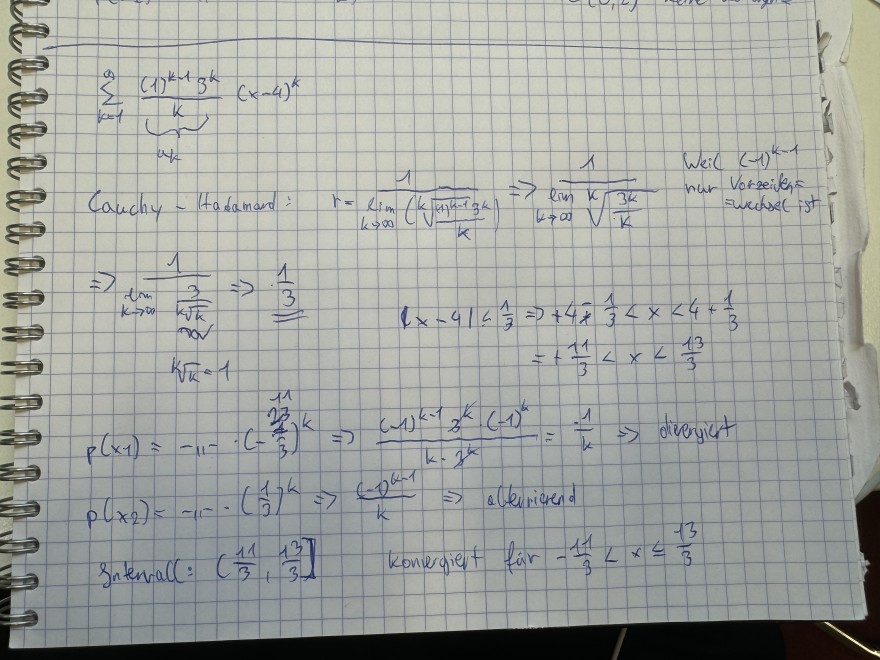 ∑_{k=1}^{∞} \frac{(1)^{k-1} 3^k}{k} (x-4)^k
a_k
Cauchy - Hadamard: r = \frac{1}{\lim_{k→∞} (\sqrt[k]{\frac{(-1)^{k-1} 3^k}{k}})} => \frac{1}{\lim_{k→∞} \sqrt[k]{\frac{3^k}{k}}}
Weil (-1)^{k-1}
nur Vorzeichen=
=wechsel ist
=> \frac{1}{\lim_{k→∞} \frac{3}{\sqrt[k]{k}}} => \frac{1}{3}
\sqrt[k]{k} = 1
|x-4| ≤ \frac{1}{3} => +4 - \frac{1}{3} < x < 4 + \frac{1}{3}
= + \frac{11}{3} < x < \frac{13}{3}
p(x1) = -"- · (- \frac{}{3})^k => \frac{(-1)^{k-1} 3^k · (-1)^k}{k · 3^k} = \frac{-1}{k} => divergiert
p(x2) = -"- · (\frac{1}{3})^k => \frac{(-1)^{k-1}}{k} => alternierend
Intervall: (\frac{11}{3}, \frac{13}{3}]
konvergiert für - \frac{11}{3} < x ≤ \frac{13}{3}